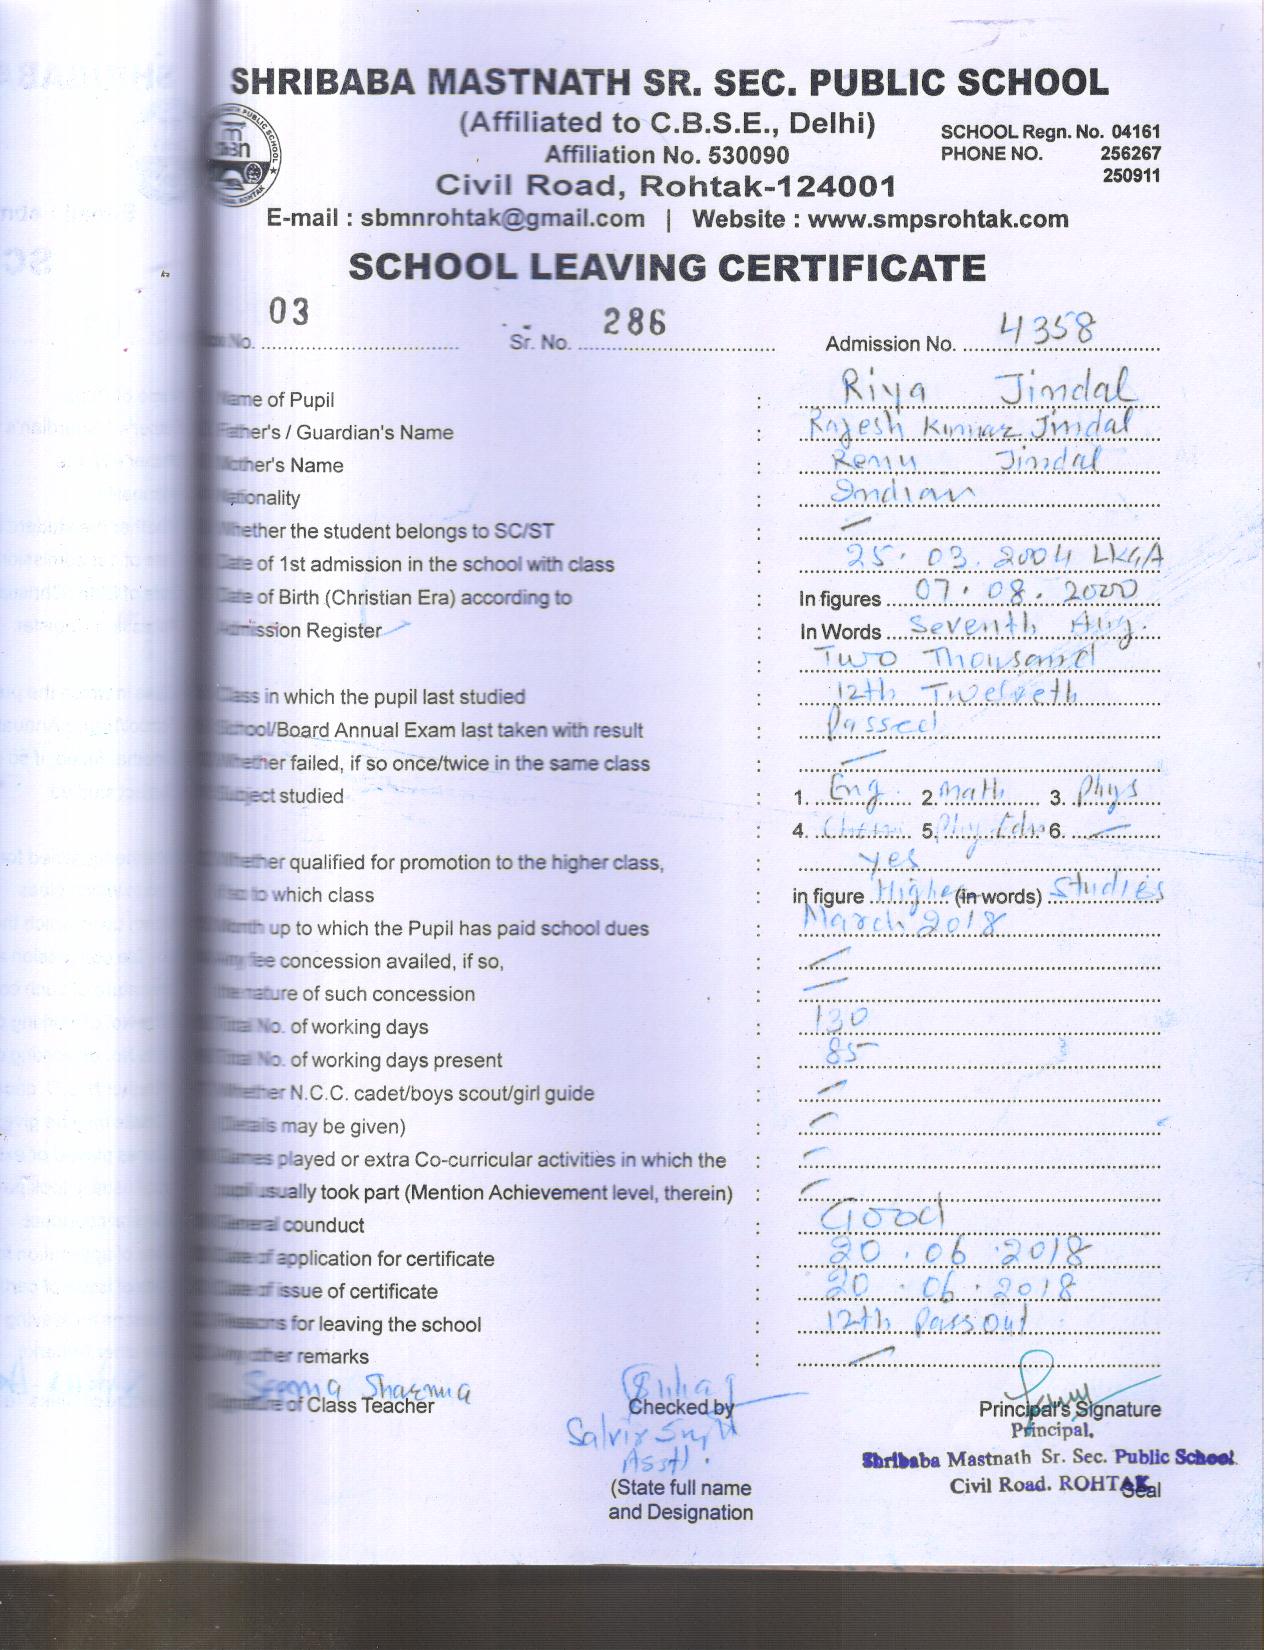 SHRIBABA MASTNATH SR. SEC. PUBLIC SCHOOL
(Affiliated to C.B.S.E., Delhi)
SCHOOL Regn. No. 04161
Affiliation No. 530090
PHONE NO. 256267
250911
Civil Road, Rohtak-124001
E-mail : sbmnrohtak@gmail.com | Website : www.smpsrohtak.com
SCHOOL LEAVING CERTIFICATE
No. 03 Sr. No. 286 Admission No. 4358
Name of Pupil : Riya Jindal
Father's / Guardian's Name : Rajesh Kumar Jindal
Mother's Name : Renu Jindal
Nationality : Indian
Whether the student belongs to SC/ST : —
Date of 1st admission in the school with class : 25.03.2004 LKGA
Date of Birth (Christian Era) according to : In figures 07.08.2000
Admission Register : In Words Seventh Aug.
: Two Thousand
Class in which the pupil last studied : 12th Twelveth
School/Board Annual Exam last taken with result : Passed
Whether failed, if so once/twice in the same class : —
Subject studied : 1. Eng. 2. Math 3. Phys
: 4. 5. Phy. Edu 6. —
Whether qualified for promotion to the higher class, : Yes
if so to which class : in figure Higher (in words) Studies
Month up to which the Pupil has paid school dues : March 2018
Any fee concession availed, if so, : —
the nature of such concession : —
Total No. of working days : 130
Total No. of working days present : 85
Whether N.C.C. cadet/boys scout/girl guide : —
(Details may be given) : —
Games played or extra Co-curricular activities in which the : —
pupil usually took part (Mention Achievement level, therein) : —
General counduct : Good
Date of application for certificate : 20.06.2018
Date of issue of certificate : 20.06.2018
Reasons for leaving the school : 12th Pass out
Any other remarks : —
Seema Sharma
Signature of Class Teacher
Checked by
Asstt.
(State full name
and Designation
Principal's Signature
Principal,
Shribaba Mastnath Sr. Sec. Public School
Civil Road. ROHTAK
Seal